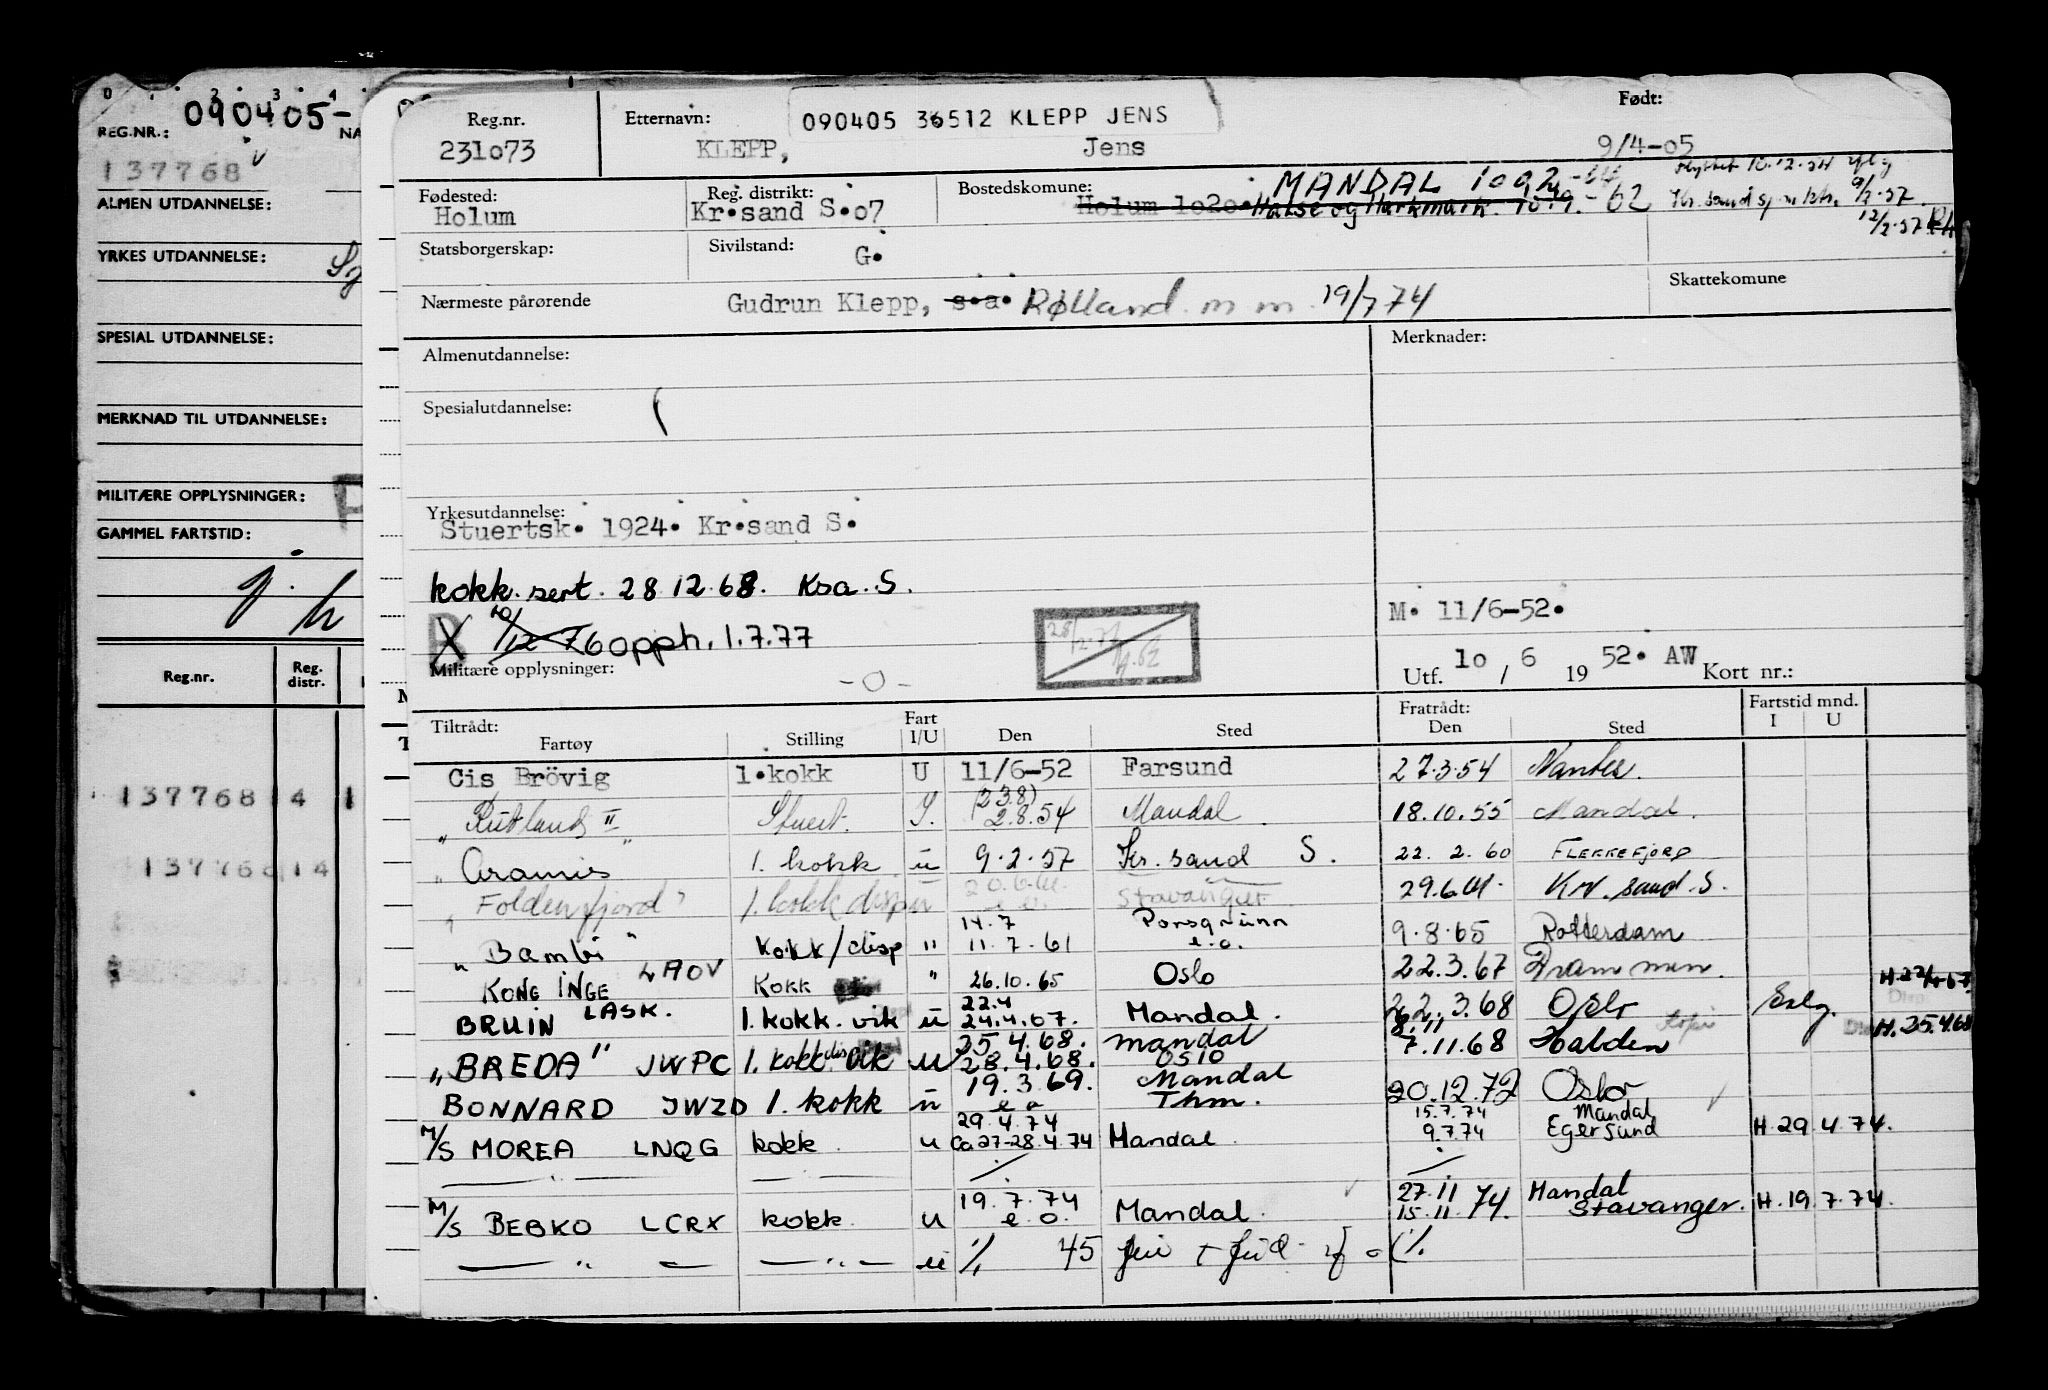 0 1 2 3 4
090405-
REG.NR.: NA
137768 v
ALMEN UTDANNELSE:
YRKES UTDANNELSE:
SPESIAL UTDANNELSE:
MERKNAD TIL UTDANNELSE:
MILITÆRE OPPLYSNINGER:
GAMMEL FARTSTID:
Reg.nr. Reg. distr.
137768 4 1
137768 14
Reg.nr. Etternavn: 090405 36512 KLEPP JENS Født:
231o73 KLEPP, Jens 9/4-o5
Fødested: Reg. distrikt: Bostedskomune: MANDAL 1002
Holum Kr.sand S.o7 Holum 1o2o. Halse og Harkmark. 10.9.-62
Flyttet 10.12.54
Kr.sand 9/2.57.
12/2.57
Statsborgerskap: Sivilstand: G.
Skattekomune
Nærmeste pårørende Gudrun Klepp, s.a. Rølland m m. 19/7 74
Almenutdannelse: Merknader:
Spesialutdannelse:
Yrkesutdannelse:
Stuertsk. 1924. Kr.sand S.
kokk. sert. 28.12.68. Ksa. S.
M. 11/6-52.
10/12-76 opph. 1.7.77
Militære opplysninger: -0-
Utf. 1o / 6 19 52. AW Kort nr.:
Tiltrådt: Fart Fratrådt: Fartstid mnd.
Fartøy Stilling I/U Den Sted Den Sted I U
Cis Brövig 1.kokk U 11/6-52 Farsund 27.3.54 Nantes.
(23.8)
"Rutland II" Stuert. I. 2.8.54 Mandal 18.10.55 Mandal.
"Aramis" 1. kokk u 9.2.57 Kr. sand S. 22. 2. 60 FLEKKEFJORD
"Foldenfjord" 1. kokk disp u 20.6. Stavanger 29.6.61. Kr. sand. S.
14.7 Porsgrunn
"Bambi" kokk/disp " 11.7.61 e.o. 9.8.65 Rotterdam
KONG INGE LAOV Kokk " 26.10.65 Oslo 22.3.67 Drammen. H.22/4-67.
22.4
BRUIN LASK. 1. kokk. vik u 24.4.67. Mandal. 22.3.68 Oslo H.25.4.68
25.4.68. mandal 8.11
"BREDA" JWPC 1. kokk. vik u 28.4.68. Oslo 7.11.68 Halden
19.3.69. Mandal
BONNARD JWZD 1. kokk u e o Thm. 20.12.72 Oslo
29.4.74 15.7.74 Mandal
M/S MOREA LNQG kokk. u ca 27-28.4.74 Mandal 9.7.74 Egersund H.29.4.74.
— " — ./. ./.
19.7.74 27.11 Mandal
M/S BEBKO LCRX kokk. u e.o. Mandal. 15.11.74. Stavanger. H.19.7.74.
— " — — " — u ./. 45 ./.